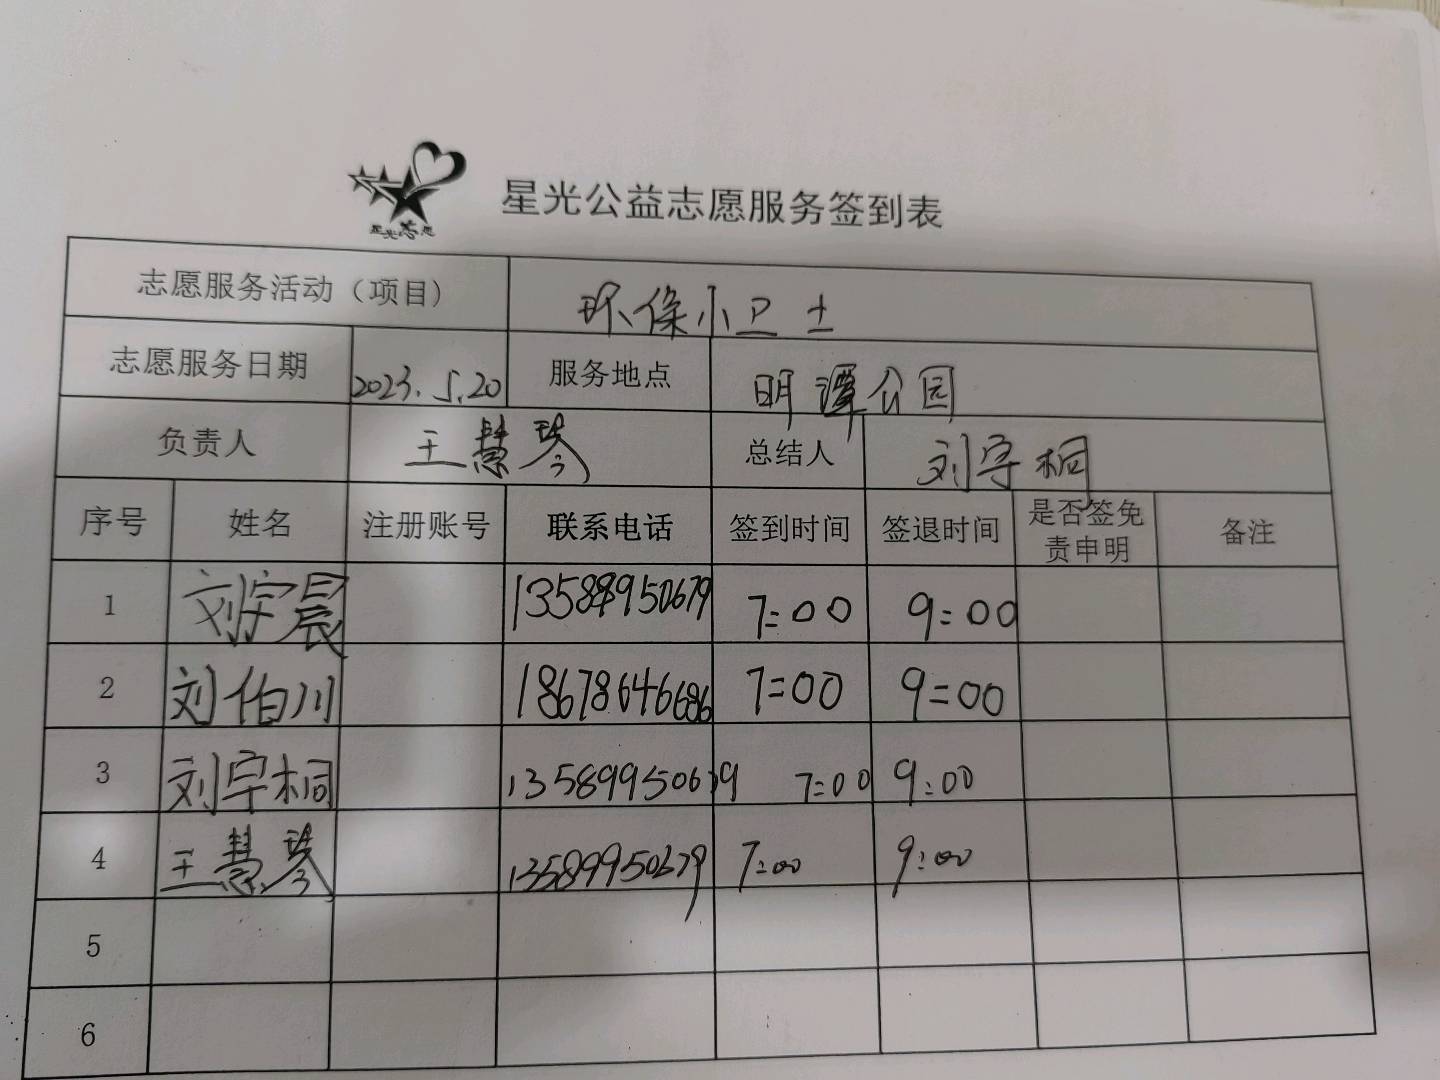 星光公益
星光公益志愿服务签到表
志愿服务活动（项目） 环保小卫士
志愿服务日期 2023.5.20 服务地点 明潭公园
负责人 王慧琴 总结人 刘宇桐
序号 姓名 注册账号 联系电话 签到时间 签退时间 是否签免责申明 备注
1 刘宇宸 7:00 9:00
2 刘伯川 18678646686 7:00 9:00
3 刘宇桐 7:00 9:00
4 王慧琴 13589950679 7:00 9:00
5
6